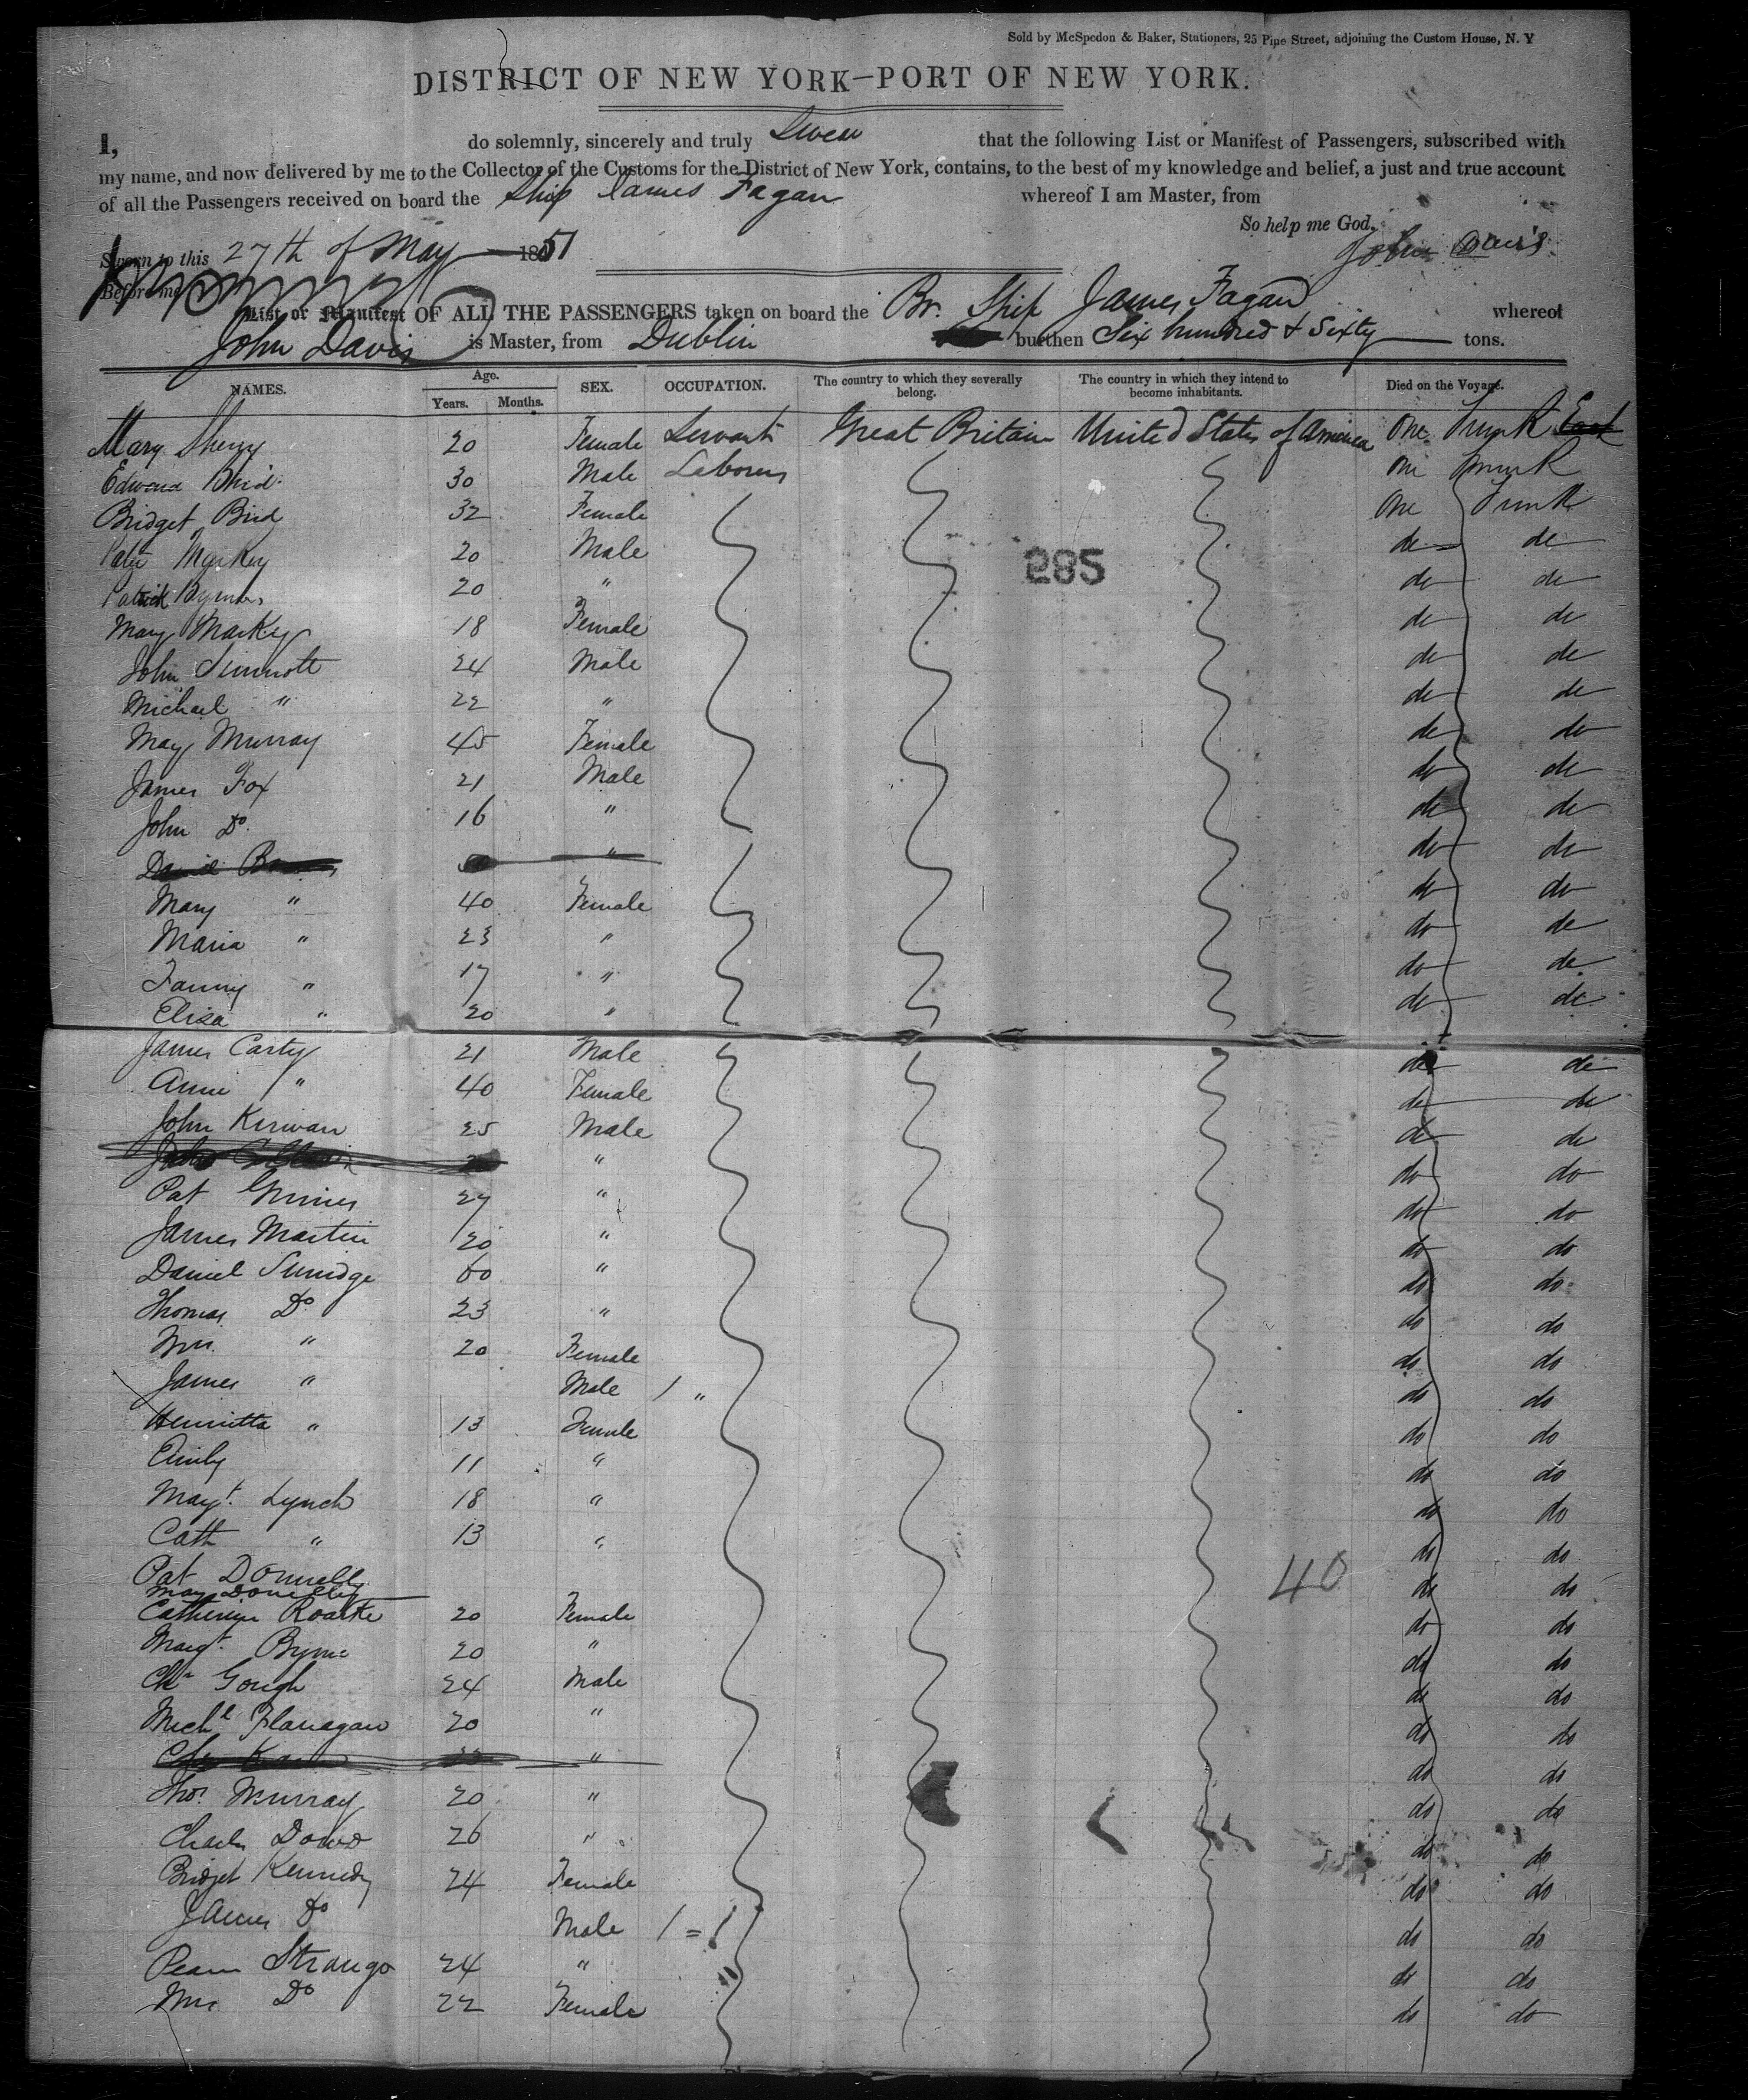 Sold by McSpedon & Baker, Stationers, 25 Pine Street, adjoining the Custom House, N. Y
DISTRICT OF NEW YORK—PORT OF NEW YORK.
I, do solemnly, sincerely and truly Swear that the following List or Manifest of Passengers, subscribed with
my name, and now delivered by me to the Collector of the Customs for the District of New York, contains, to the best of my knowledge and belief, a just and true account
of all the Passengers received on board the Ship James Fagan whereof I am Master, from
So help me God.
Sworn to this 27th of May 1851 John Davis
Before me
List or Manifest OF ALL THE PASSENGERS taken on board the Br. Ship James Fagan whereof
John Davis is Master, from Dublin burthen Six hundred & Sixty tons.
NAMES. Age. Years. Months. SEX. OCCUPATION. The country to which they severally belong. The country in which they intend to become inhabitants. Died on the Voyage.
Mary Sherry 20 Female Servant Great Britain United States of America One Trunk
Edward 30 Male Laborers One Trunk
Bridget Bird 32 Female One Trunk
Markey 20 Male do do
Patrick 20 " do do
Mary Markey 18 Female do do
John Sinnott 24 Male do do
Michael " 22 " do do
Mary Murray 45 Female do do
James Fox 21 Male do do
John Do 16 " do do
" do do
Mary " 40 Female do do
Maria " 23 " do do
Fanny " 17 " do do
Eliza " 20 " do do
James Carty 21 Male do do
Anne " 40 Female do do
John Kirwan 25 Male do do
" do do
Pat Grimes 27 " do do
James Martin 20 " do do
Daniel 60 " do do
Thomas Do 23 " do do
Mrs. " 20 Female do do
James " Male 1 " do do
Henrietta " 13 Female do do
Emily 11 " do do
Margt. Lynch 18 " do do
Cath " 13 " do do
Pat Donnelly do do
May Donnelly
Catherine Roarke 20 Female do do
Margt. Byrne 20 " do do
Gough 24 Male do do
Michl Flanagan 20 " do do
" do do
Thos. Murray 20 " do do
Charles Dowd 26 " do do
Bridget Kennedy 24 Female do do
James Do Male 1 = 1 do do
24 " do do
Mrs Do 22 Female do do
285
40